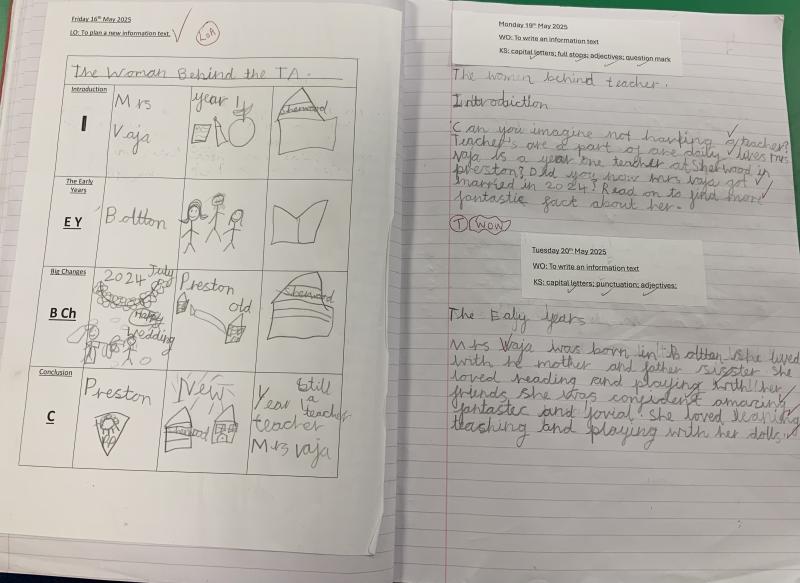 Friday 16th May 2025
LO: To plan a new information text.
LoA
The Woman Behind the TA.
Introduction
I
Mrs
Vaja
year 1
Sherwood
The Early
Years
E Y
Boltton
Big Changes
B Ch
2024 July
Happy
wedding
Preston
old
Sherwood
Conclusion
C
Preston
New
Sherwood
Still
a
Year teacher
teacher
Mrs Vaja
Monday 19th May 2025
WO: To write an information text
KS: capital letters; full stops; adjectives; question mark
The women behind teacher.
Introdiction
Can you imagine not harking a teacher?
Teacher's are a part of are daily lives mrs
Vaja is a year one teacher at Sherwood in
preston? Did you now mrs vaja got
married in 2024? Read on to find more
fantastic fact about her.
T wow
Tuesday 20th May 2025
WO: To write an information text
KS: capital letters; punctuation; adjectives;
The Ealy years
Mrs Vaja was born in Boltton she lived
with he mother and father sisster she
loved reading and playing with her
friends she was confident amazing
fantastec and Jovial she loved leaning
teashing and playing with her dolls.